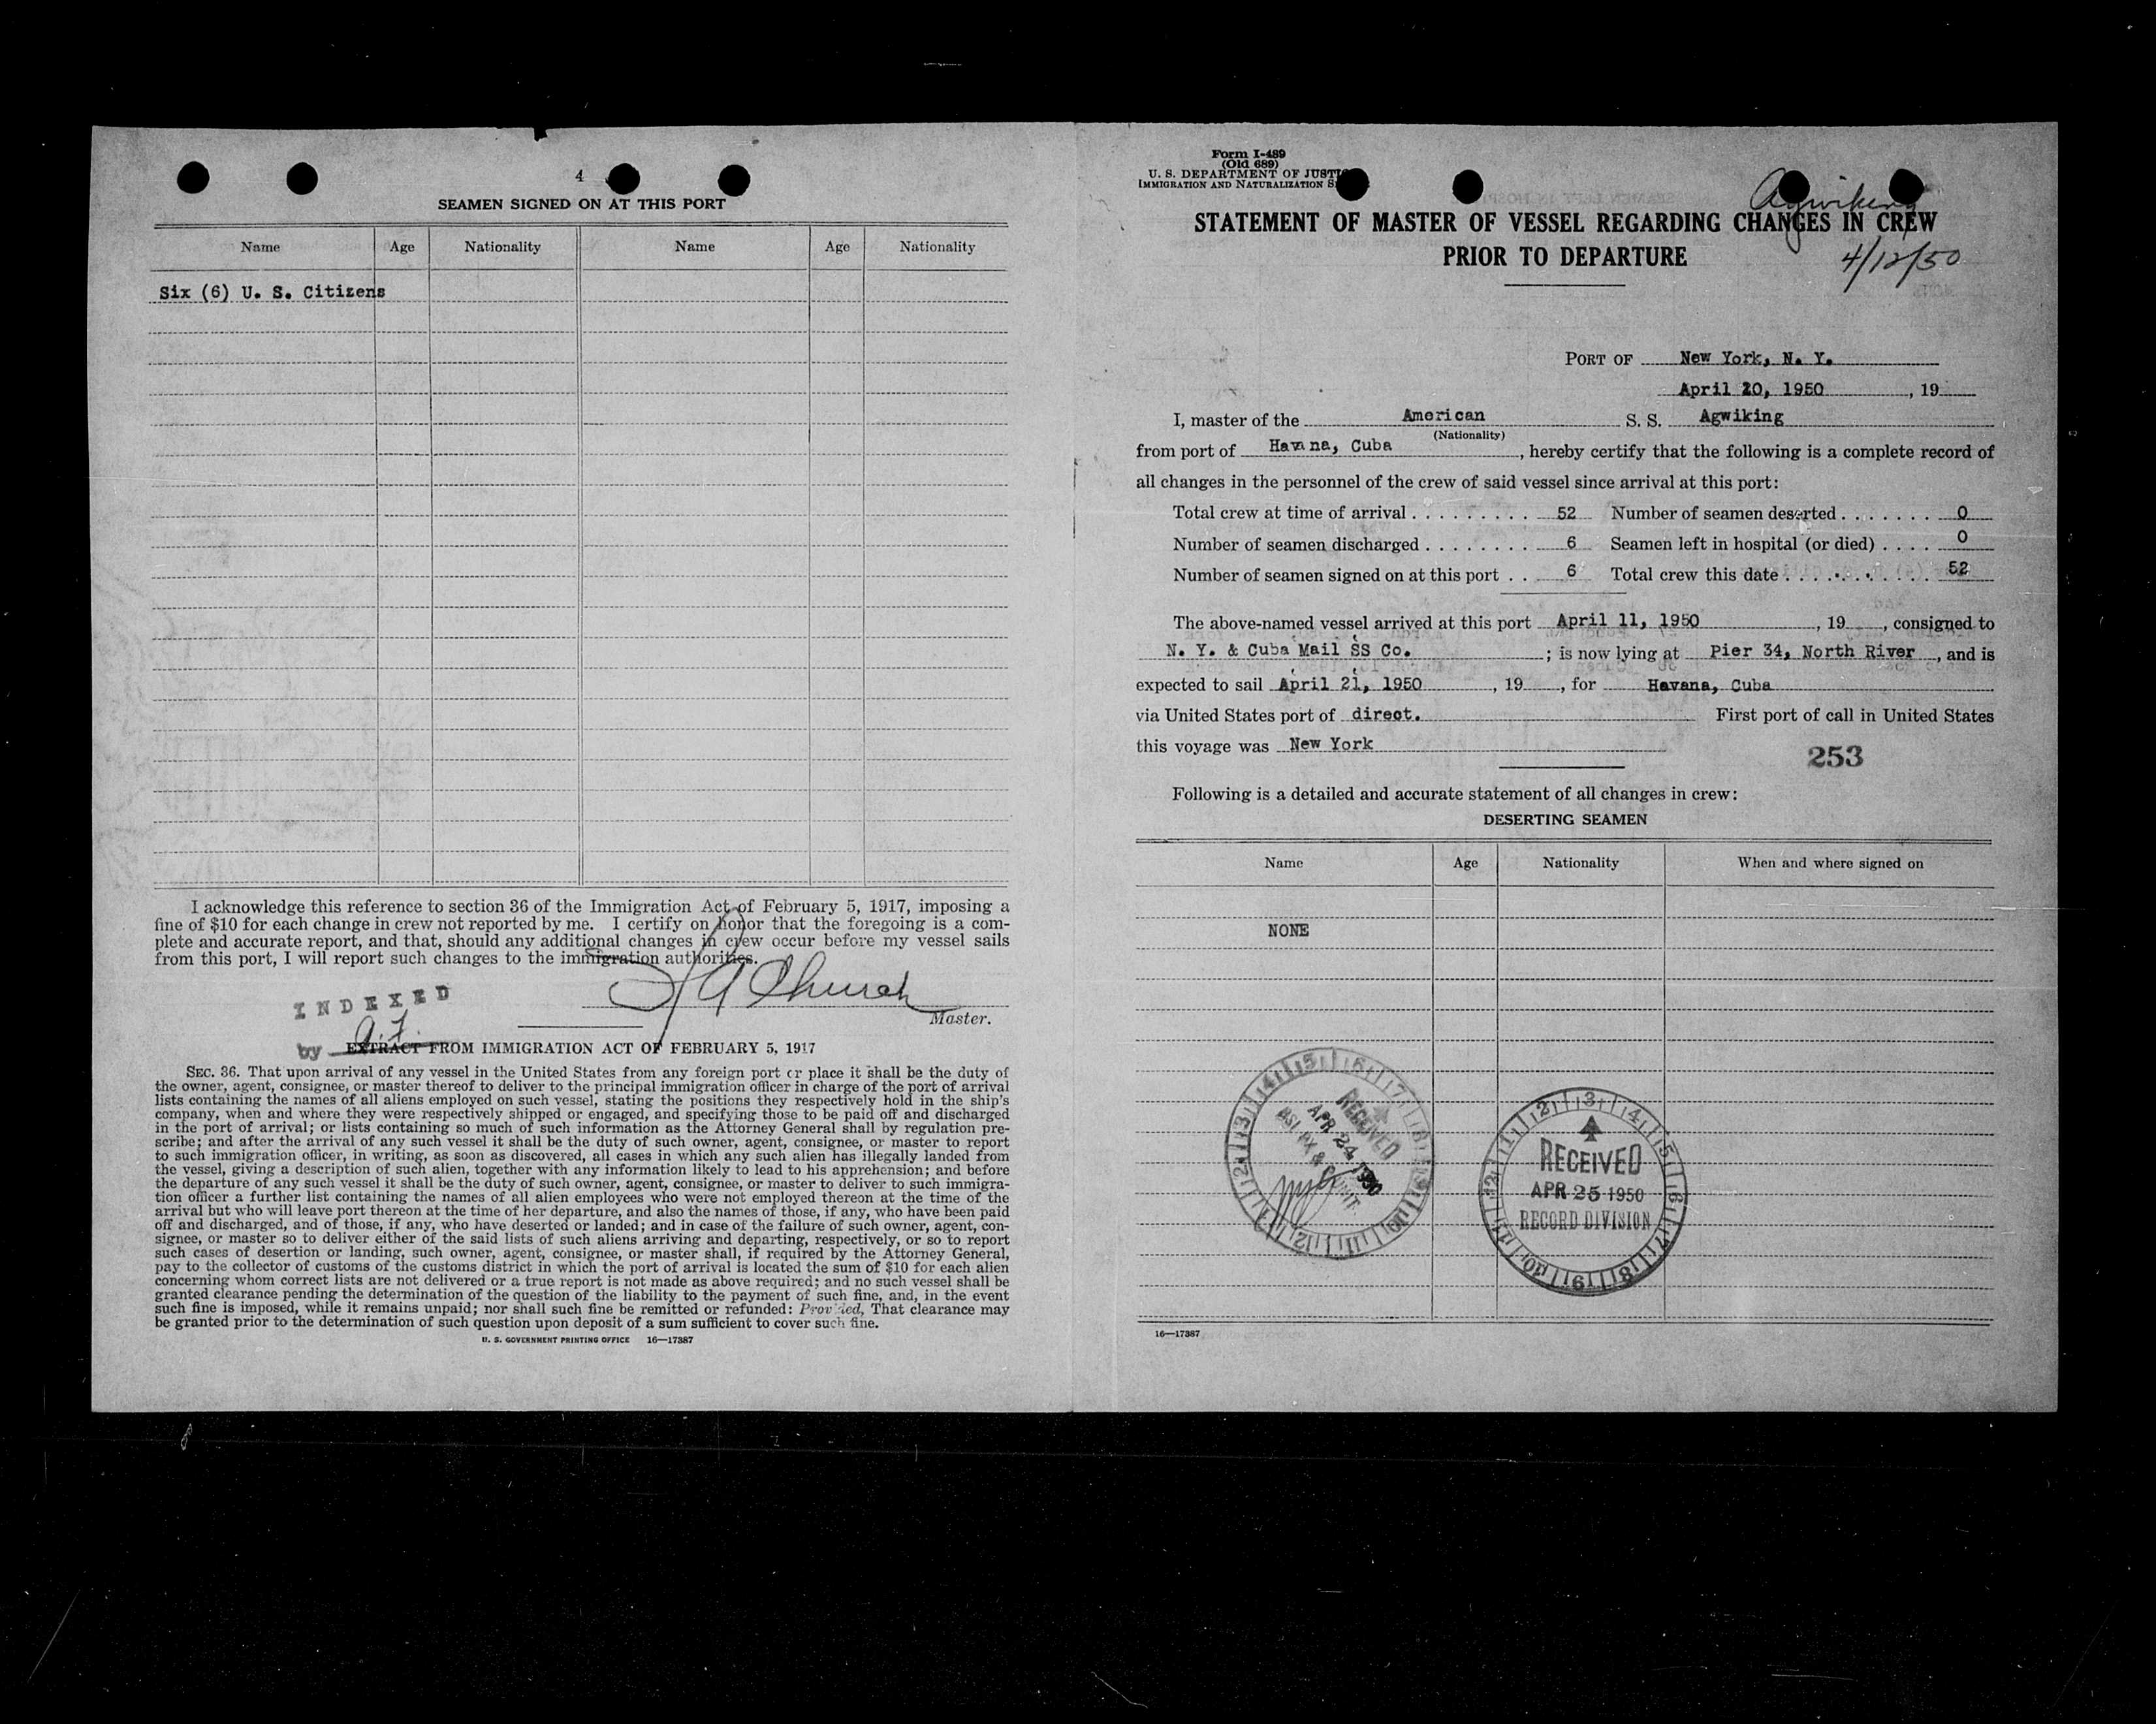 4
SEAMEN SIGNED ON AT THIS PORT
Name Age Nationality Name Age Nationality
Six (6) U. S. Citizens
I acknowledge this reference to section 36 of the Immigration Act of February 5, 1917, imposing a
fine of $10 for each change in crew not reported by me. I certify on honor that the foregoing is a com-
plete and accurate report, and that, should any additional changes in crew occur before my vessel sails
from this port, I will report such changes to the immigration authorities.
Church
Master.
INDEXED
by
EXTRACT FROM IMMIGRATION ACT OF FEBRUARY 5, 1917
SEC. 36. That upon arrival of any vessel in the United States from any foreign port or place it shall be the duty of
the owner, agent, consignee, or master thereof to deliver to the principal immigration officer in charge of the port of arrival
lists containing the names of all aliens employed on such vessel, stating the positions they respectively hold in the ship's
company, when and where they were respectively shipped or engaged, and specifying those to be paid off and discharged
in the port of arrival; or lists containing so much of such information as the Attorney General shall by regulation pre-
scribe; and after the arrival of any such vessel it shall be the duty of such owner, agent, consignee, or master to report
to such immigration officer, in writing, as soon as discovered, all cases in which any such alien has illegally landed from
the vessel, giving a description of such alien, together with any information likely to lead to his apprehension; and before
the departure of any such vessel it shall be the duty of such owner, agent, consignee, or master to deliver to such immigra-
tion officer a further list containing the names of all alien employees who were not employed thereon at the time of the
arrival but who will leave port thereon at the time of her departure, and also the names of those, if any, who have been paid
off and discharged, and of those, if any, who have deserted or landed; and in case of the failure of such owner, agent, con-
signee, or master so to deliver either of the said lists of such aliens arriving and departing, respectively, or so to report
such cases of desertion or landing, such owner, agent, consignee, or master shall, if required by the Attorney General,
pay to the collector of customs of the customs district in which the port of arrival is located the sum of $10 for each alien
concerning whom correct lists are not delivered or a true report is not made as above required; and no such vessel shall be
granted clearance pending the determination of the question of the liability to the payment of such fine, and, in the event
such fine is imposed, while it remains unpaid; nor shall such fine be remitted or refunded: Provided, That clearance may
be granted prior to the determination of such question upon deposit of a sum sufficient to cover such fine.
U. S. GOVERNMENT PRINTING OFFICE 16—17387
Form I-489
(Old 689)
U. S. DEPARTMENT OF JUSTI
IMMIGRATION AND NATURALIZATION S
Agwiking
STATEMENT OF MASTER OF VESSEL REGARDING CHANGES IN CREW
PRIOR TO DEPARTURE
4/12/50
PORT OF New York, N. Y.
April 20, 1950, 19
I, master of the American S. S. Agwiking
(Nationality)
from port of Havana, Cuba, hereby certify that the following is a complete record of
all changes in the personnel of the crew of said vessel since arrival at this port:
Total crew at time of arrival 52 Number of seamen deserted 0
Number of seamen discharged 6 Seamen left in hospital (or died) 0
Number of seamen signed on at this port 6 Total crew this date 52
The above-named vessel arrived at this port April 11, 1950, 19, consigned to
N. Y. & Cuba Mail SS Co.; is now lying at Pier 34, North River, and is
expected to sail April 21, 1950, 19, for Havana, Cuba
via United States port of direct. First port of call in United States
this voyage was New York
253
Following is a detailed and accurate statement of all changes in crew:
DESERTING SEAMEN
Name Age Nationality When and where signed on
NONE
RECEIVED
APR 24 1950
RECEIVED
APR 25 1950
RECORD DIVISION
16—17387